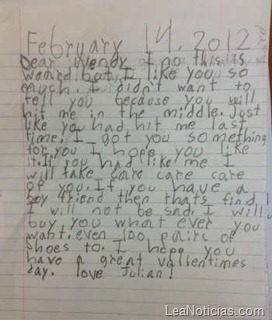 February 14, 2012
Dear Wendy I no this is
woard but I like you so
much. I didn't want to
tell you because you will
hit me in the middle. Just
like you had hit me last
time. I got you something
for you I hope you like
it. If you had like me I
will take care care care
of you. If you have a
boy friend then thats find.
I will not be sad. I will
buy you what ever you
want. even 100 pairs of
shoes to. I hope you
have a great vallentimes
day. love Julian!
LeaNoticias.com